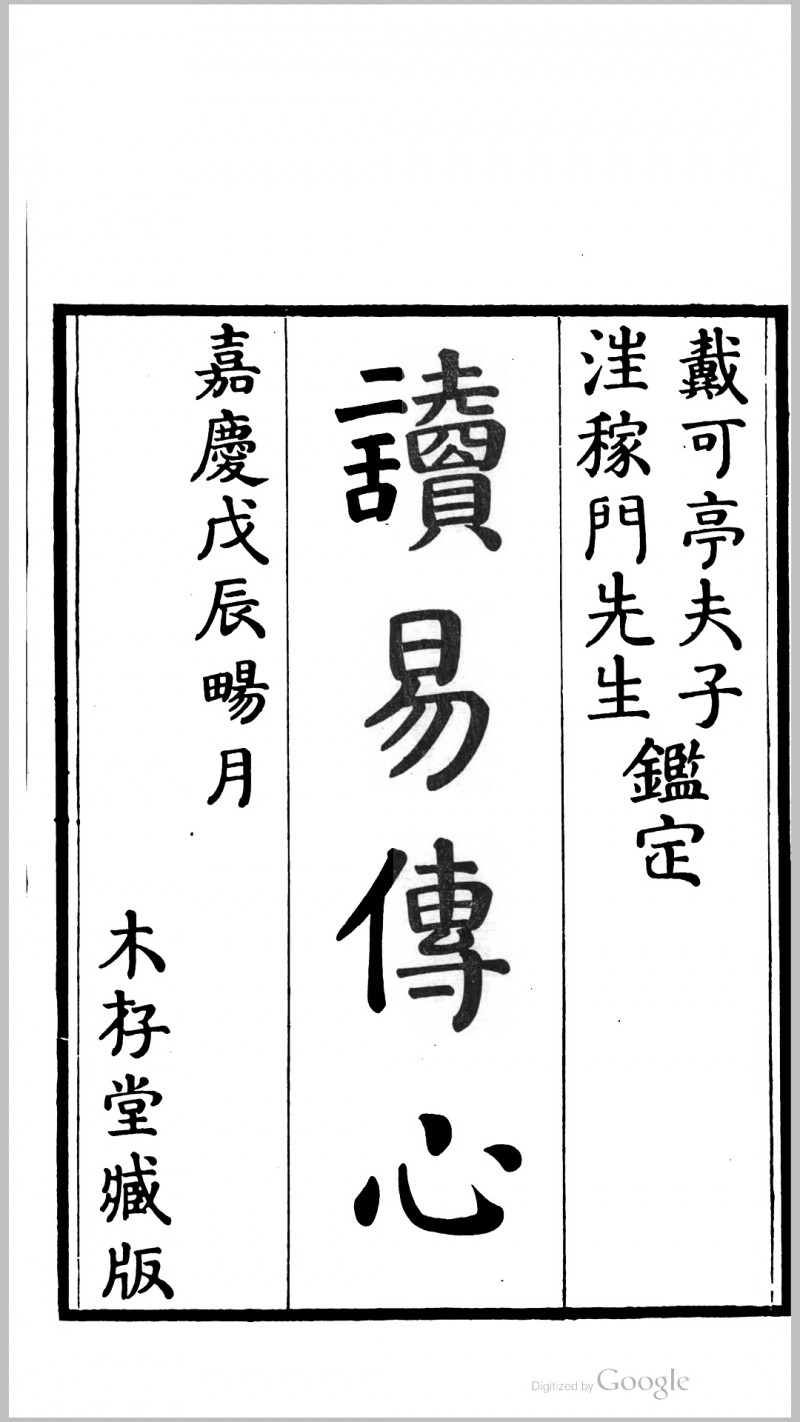 戴可亭夫子
汪稼門先生
鑑定
讀易傳心
嘉慶戊辰畼月
木杍堂藏版
Digitized by Google